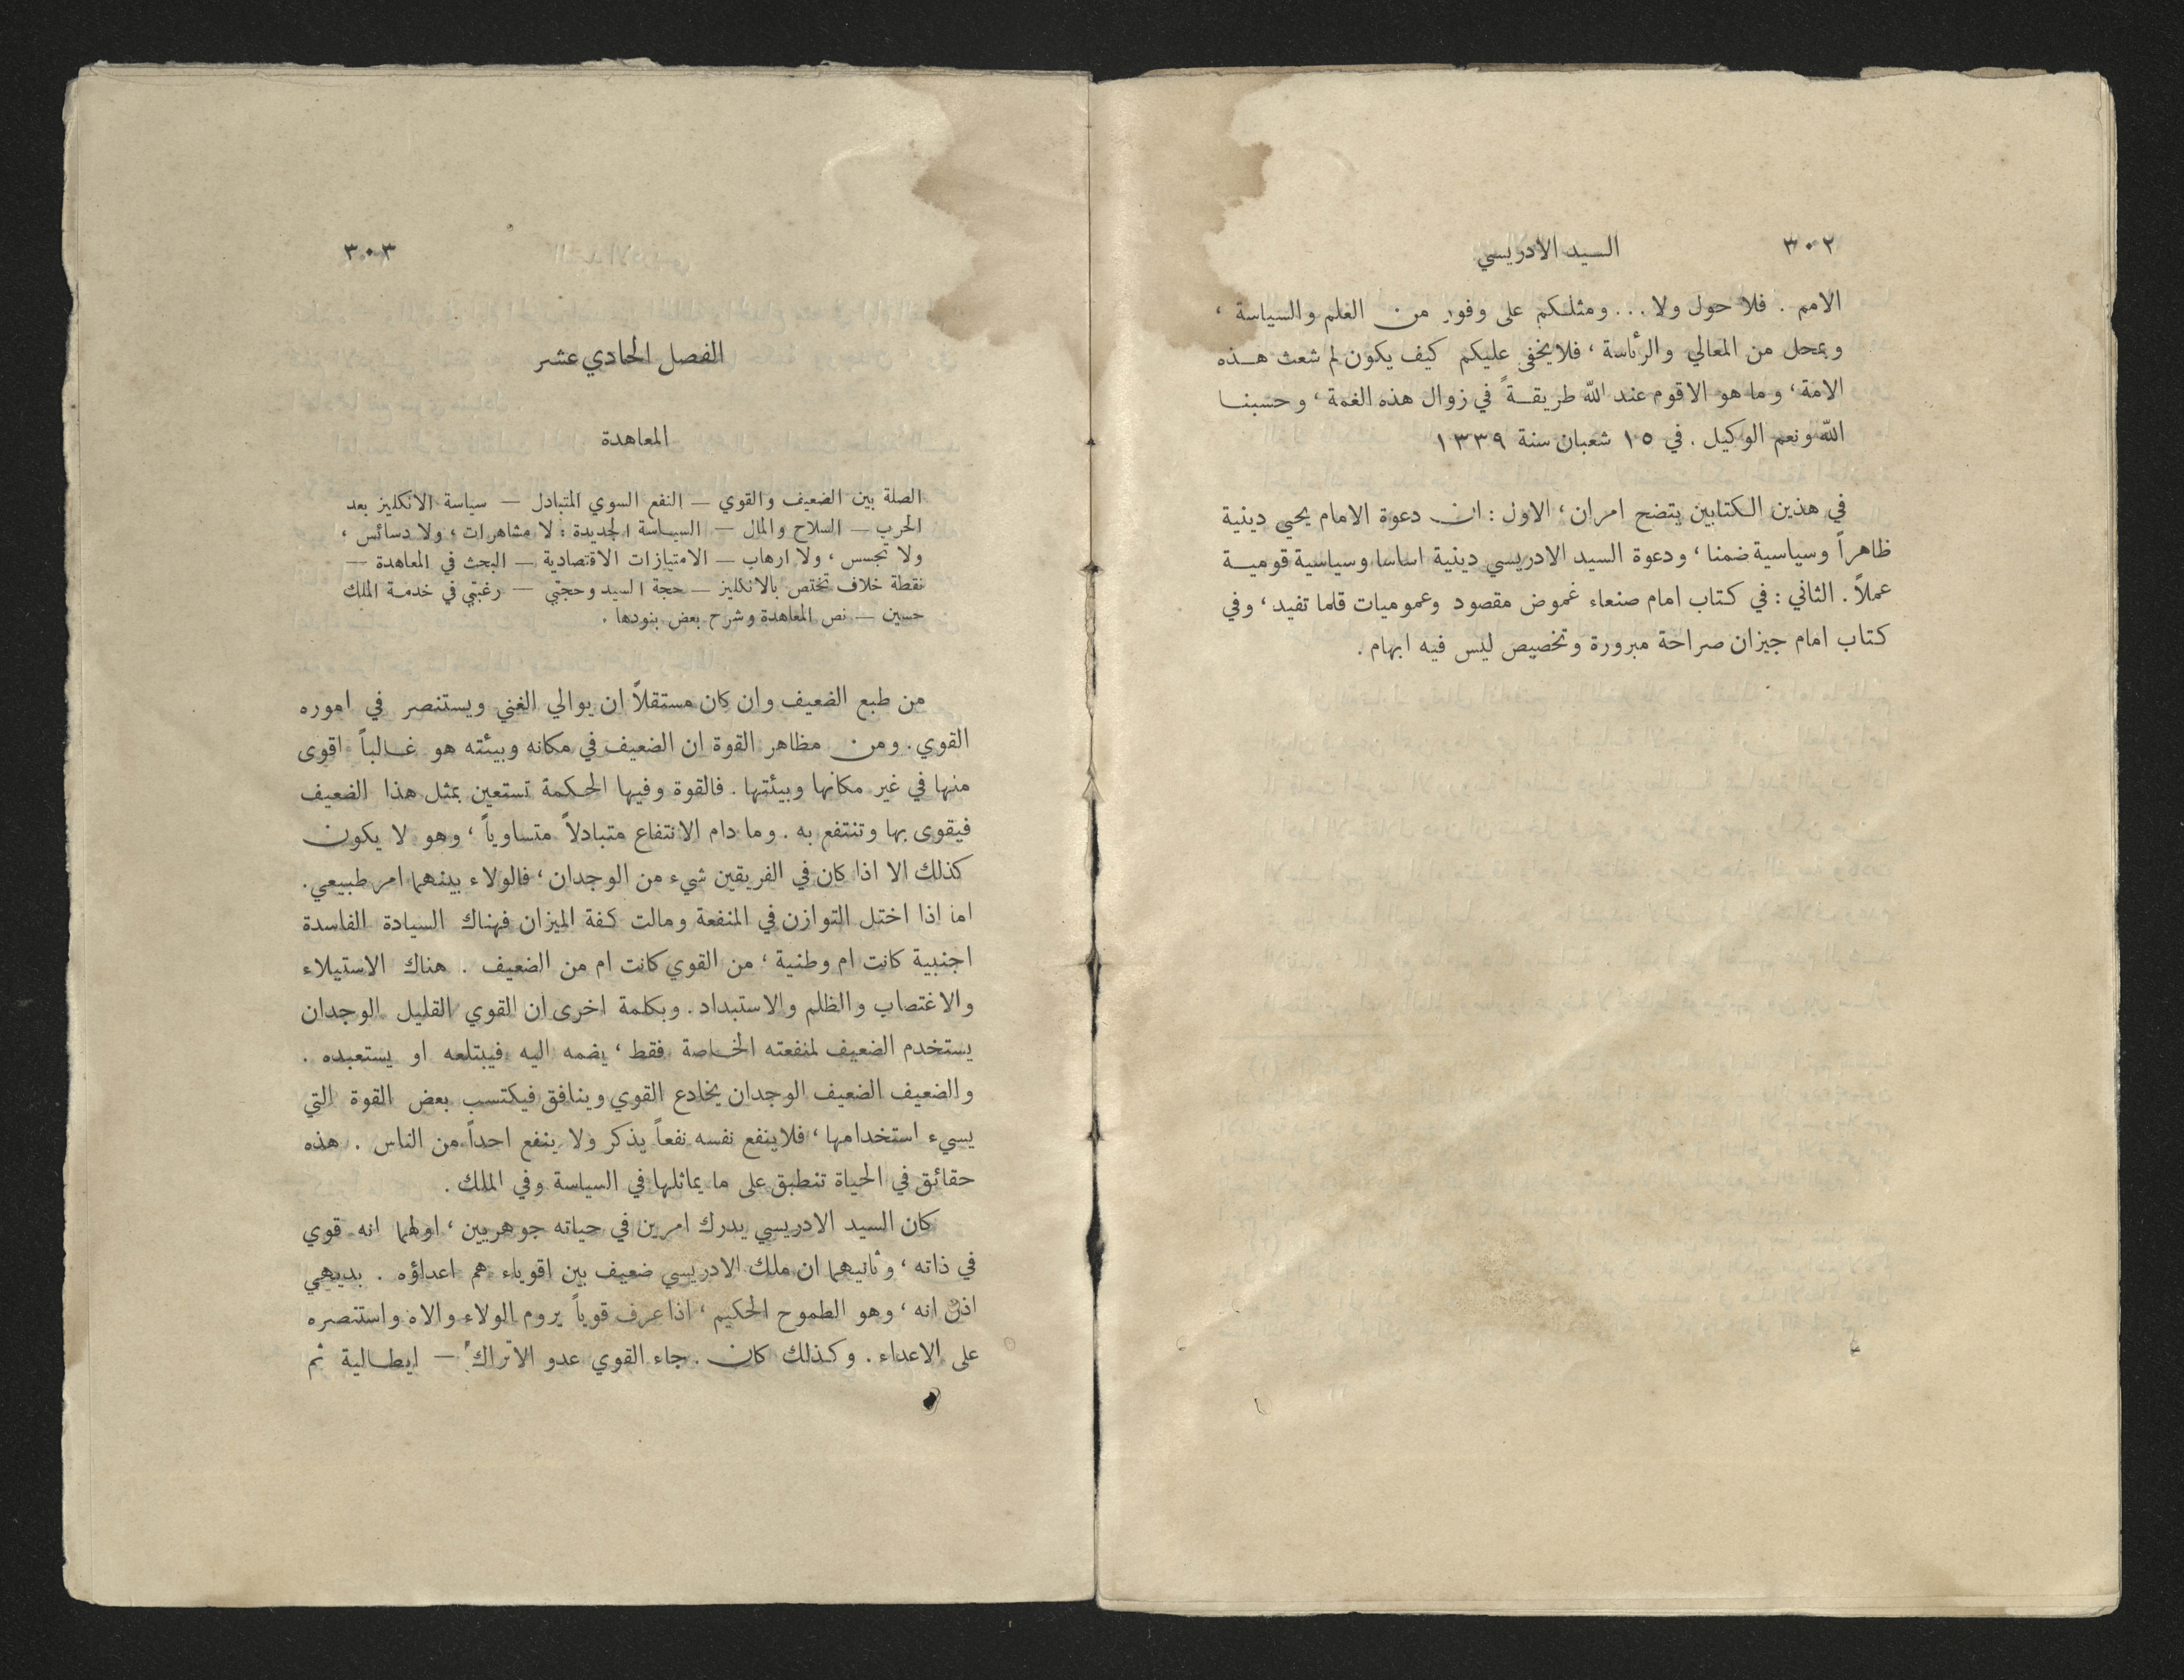 ٣٠٢
السيد الادريسي
الامم . فلا حول ولا . . . ومثلكم على وفور من العلم والسياسة ،
وبمحل من المعالي والرئاسة ، فلا يخفى عليكم كيف يكون لم شعث هذه
الامة ، وما هو الاقوم عند الله طريقةً في زوال هذه الغمة ، وحسبنا
الله ونعم الوكيل . في ١٥ شعبان سنة ١٣٣٩
في هذين الكتابين يتضح امران ، الاول : ان دعوة الامام يحيى دينية
ظاهراً وسياسية ضمنا ، ودعوة السيد الادريسي دينية اساسا وسياسية قومية
عملاً . الثاني : في كتاب امام صنعاء غموض مقصود وعموميات قلما تفيد ، وفي
كتاب امام جيزان صراحة مبرورة وتخصيص ليس فيه ابهام .
٣٠٣
الفصل الحادي عشر
المعاهدة
الصلة بين الضعيف والقوي — النفع السوي المتبادل — سياسة الانكليز بعد
الحرب — السلاح والمال — السياسة الجديدة : لا مشاهرات ، ولا دسائس ،
ولا تجسس ، ولا ارهاب — الامتيازات الاقتصادية — البحث في المعاهدة —
نقطة خلاف تختص بالانكليز — حجة السيد وحجتي — رغبتي في خدمة الملك
حسين — نص المعاهدة وشرح بعض بنودها .
من طبع الضعيف وان كان مستقلاً ان يوالي الغني ويستنصر في اموره
القوي . ومن مظاهر القوة ان الضعيف في مكانه وبيئته هو غالباً اقوى
منها في غير مكانها وبيئتها . فالقوة وفيها الحكمة تستعين بمثل هذا الضعيف
فيقوى بها وتنتفع به . وما دام الانتفاع متبادلاً متساوياً ، وهو لا يكون
كذلك الا اذا كان في الفريقين شيء من الوجدان ، فالولاء بينهما امر طبيعي .
اما اذا اختل التوازن في المنفعة ومالت كفة الميزان فهناك السيادة الفاسدة
اجنبية كانت ام وطنية ، من القوي كانت ام من الضعيف . هناك الاستيلاء
والاغتصاب والظلم والاستبداد . وبكلمة اخرى ان القوي القليل الوجدان
يستخدم الضعيف لمنفعته الخاصة فقط ، يضمه اليه فيبتلعه او يستعبده .
والضعيف الضعيف الوجدان يخادع القوي وينافق فيكتسب بعض القوة التي
يسيء استخدامها ، فلا ينفع نفسه نفعاً يذكر ولا ينفع احداً من الناس . هذه
حقائق في الحياة تنطبق على ما يماثلها في السياسة وفي الملك .
كان السيد الادريسي يدرك امرين في حياته جوهريين ، اولهما انه قوي
في ذاته ، وثانيهما ان ملك الادريسي ضعيف بين اقوياء هم اعداؤه . بديهي
اذن انه ، وهو الطموح الحكيم ، اذا عرف قوياً يروم الولاء والاه واستنصره
على الاعداء . وكذلك كان . جاء القوي عدو الاتراك — ايطالية ثم